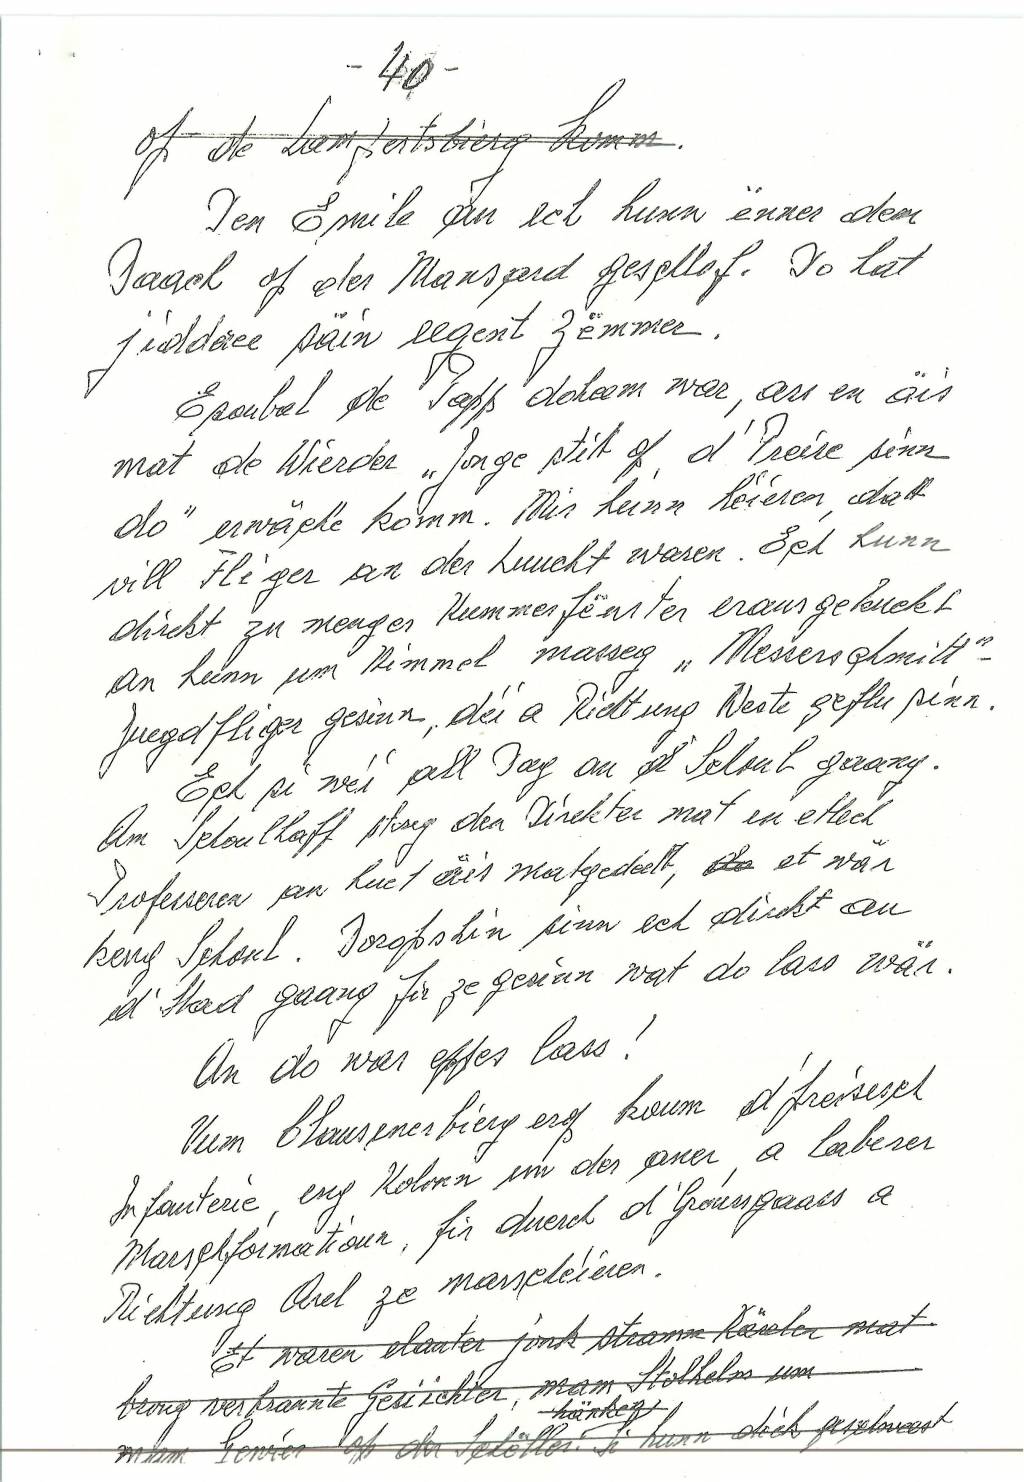 - 40 -
of de Lampertsbierg komm.
Den Emile an ech hunn ënner dem
Daach of der Mansard geschlof. Do hat
jiddäree säin eegent Zëmmer.
Esoubal de Papp doheem war, ass en äis
mat de Wierder „Jonge stitt of, d'Preise sinn
do" erwäche komm. Mir hunn héieren, datt
vill Fliger an der Luucht waren. Ech hunn
direkt zu menger Kummerfënster erausgekuckt
an hunn um Himmel masseg „Messerschmitt"-
Juegdfliger gesinn, déi a Richtung Weste geflu sinn.
Ech si wéi all Dag an d'Schoul gaang.
Am Schoulhaff stong den Direkter mat en etlech
Professeren an huet äis matgedeelt, do et wär
keng Schoul. Dorophin sinn ech direkt an
d'Stad gaang fir ze gesinn wat do lass wär.
An do war eppes lass!
Vum Clausenerbierg erof koum d'preisesch
Infanterie, eng Kolonn un der aner, a laberer
Marschformatioun, fir duerch d'Groussgaass a
Richtung Arel ze marschéieren.
Et waren elauter jonk stramm Kärelen mat
brong verbrannte Gesiichter, mam Stolhelm um
hänken
mam Gewier op der Schëller. Si hunn dick geschweest